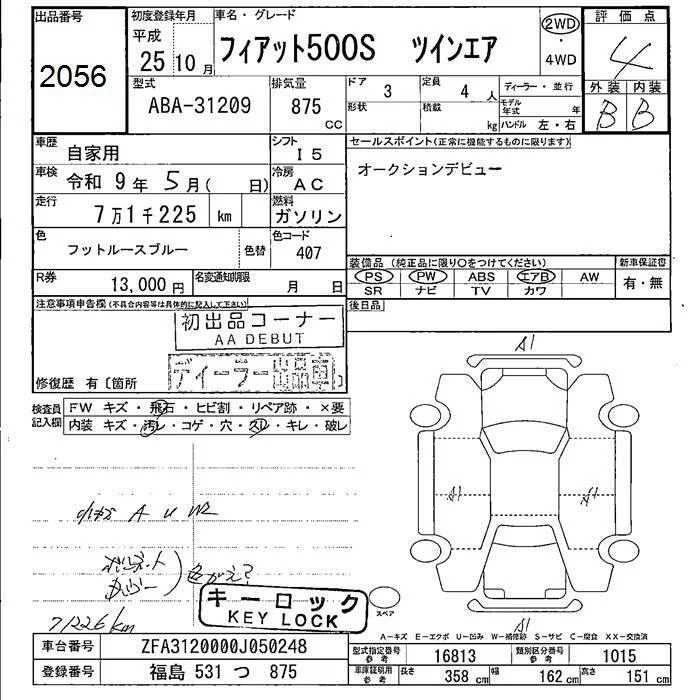 出品番号
2056
初度登録年月
平成
25年10月
車名・グレード
フィアット500S ツインエア
2WD
・
4WD
評価点
4
外装 内装
B B
型式
ABA-31209
排気量
875
CC
ドア
3
定員
4 人
形状
積載
kg
ディーラー・並行
モデル年式 年
ハンドル 左・右
車歴
自家用
シフト
I5
車検
令和 9年 5月( 日)
冷房
AC
走行
7万1千225 km
燃料
ガソリン
色
フットルースブルー
色替
色コード
407
R券
13,000円
名変通知期限
月 日
セールスポイント(正常に機能するものに限ります)
オークションデビュー
装備品 (純正品に限り○をつけてください)
PS PW ABS エアB AW
SR ナビ TV カワ
新車保証書
有・無
後日品
注意事項申告欄(不具合内容等は具体的に記入して下さい)
初出品コーナー
AA DEBUT
ディーラー出品車
修復歴 有〔箇所 〕
検査員記入欄
FW キズ・飛石・ヒビ割・リペア跡・×要
内装 キズ・汚レ・コゲ・穴・スレ・キレ・破レ
小キズ A U W2
ボンネット
カバー
色がえ?
71226km
キーロック
KEY LOCK
A1
A1
A1
A1
スペア
A-キズ E-エクボ U-凹み W-補修跡 S-サビ C-腐食 XX-交換済
車台番号
ZFA3120000J050248
登録番号
福島 531 つ 875
型式指定番号
参考
16813
類別区分番号
参考
1015
車庫証明用
参考
長さ 358 cm
幅 162 cm
高さ 151 cm